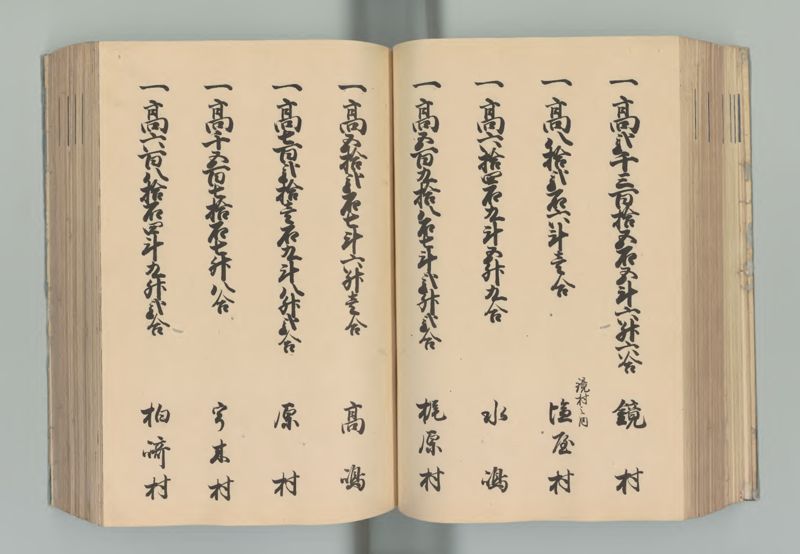 一高弐千三百拾五石五斗六升六合 鏡村
一高八拾弐石六斗壱合 鏡村之内 塩屋村
一高六拾四石九斗五升九合 水嶋
一高五百九拾八石七斗弐升弐合 梶原村
一高五拾弐石七斗六升壱合 高嶋
一高七百弐拾壱石九斗八升弐合 原村
一高千五百七拾石七升八合 宇木村
一高六百八拾石四斗九升弐合 柏崎村